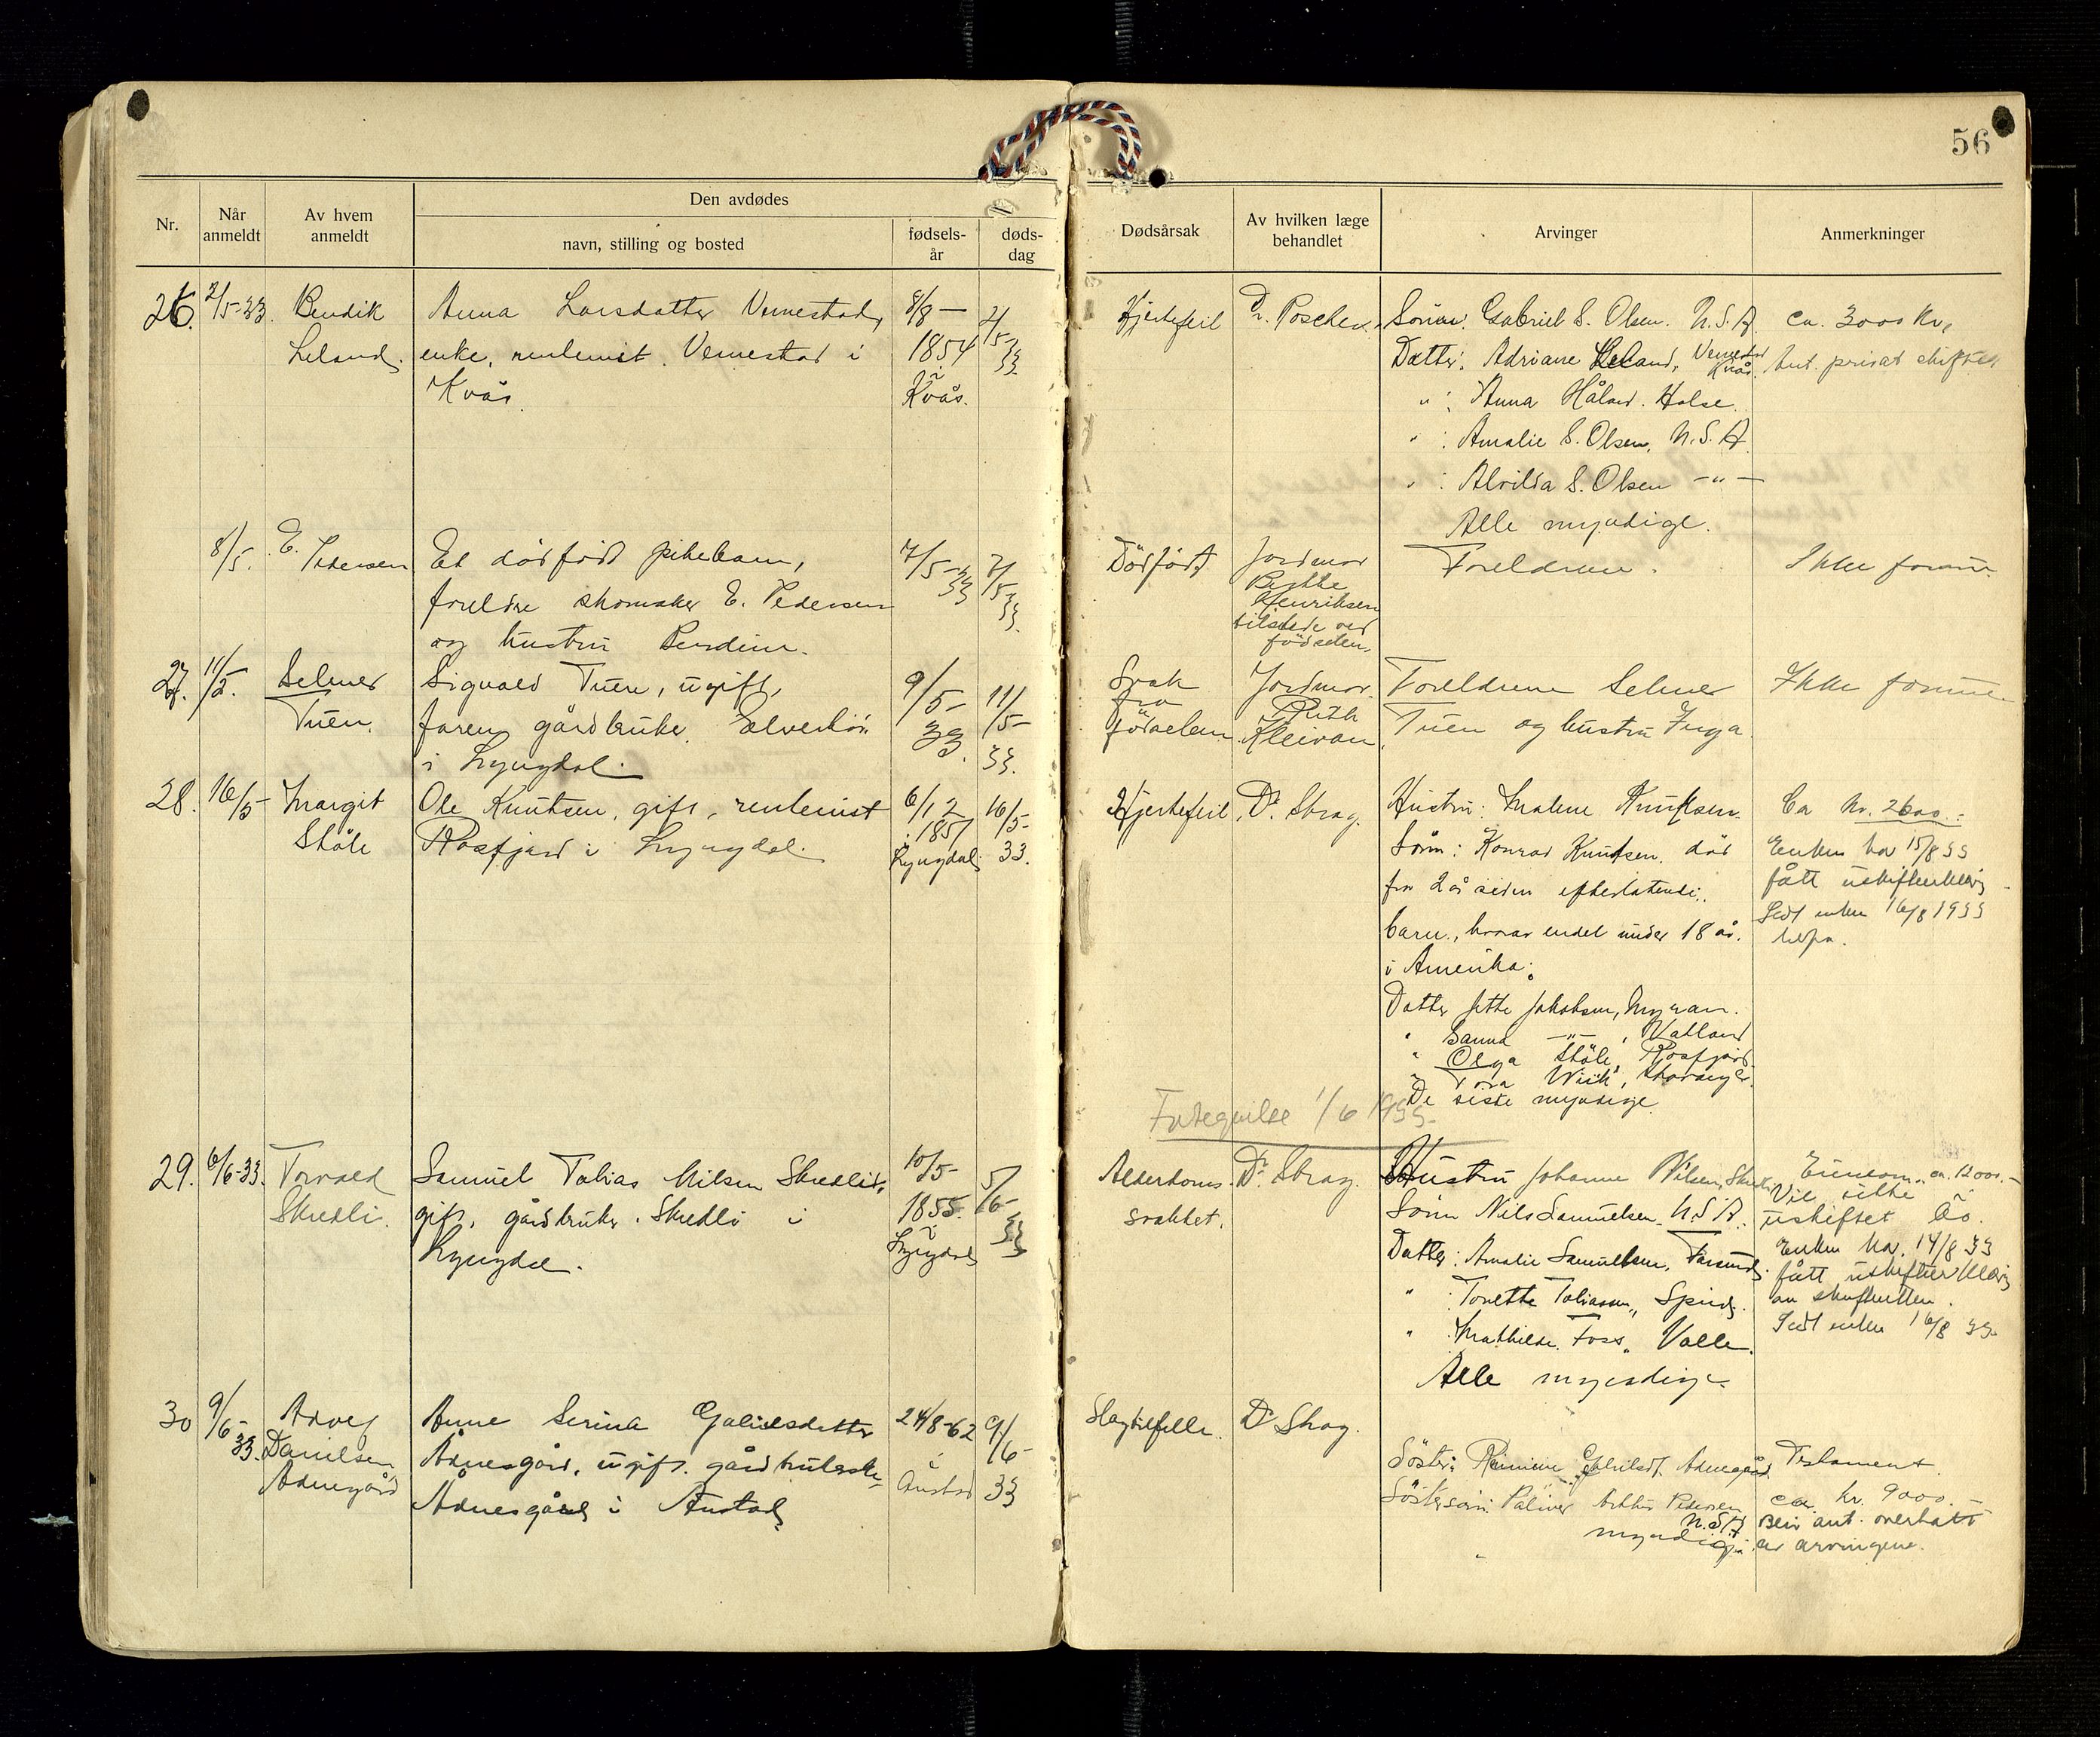 56
Nr.
Når anmeldt
Av hvem anmeldt
Den avdødes
navn, stilling og bosted
fødsels-år
døds-dag
Dødsårsak
Av hvilken læge behandlet
Arvinger
Anmerkninger
26. 2/5-33. Bendik Anna Larsdatter Vemestad, 8/8 — 2/5-
Leland. enke, rentenist. Vemestad i 1854 33
Kvås. i Kvås.
Hjertefeil Dr. Poschen. Sönn. Gabriel S. Olsen. U.S.A. ca. 3000 Kr.
Datter: Adriane Leland, Vemestad Kvås. Ant. privat skiftes
" : Anna Håland. Halse.
" : Amalie S. Olsen, U.S.A.
" : Alvilda S. Olsen —"—
Alle myndige.
8/5. E. Pedersen Et dödfödt pikebarn, 7/5-33 7/5-33.
foreldre skomaker E. Pedersen
og hustru Berdine.
Dödfödt Jordmor Foreldrene. Ikke formue
Henriksen
tilstede ved
födselen.
27. 11/5. Selmer Sigvald Tuen, ugift, 9/5- 11/5-
Tuen. faren gårdbruker 33. 33.
i Lyngdal.
Svak Jordmor Foreldrene Selmer Ikke formue.
fra Ruth Tuen og hustru Inga
födselen Kleivan.
28. 16/5- Margit Ole Knutsen, gift, rentenist 6/12 16/5-
Ståle Rosfjord i Lyngdal. 1851 33.
Lyngdal.
Hjertefeil. Dr. Strag. Hustru: Malene Knutsen. Ca kr. 2600.-
Sönn: Konrad Knutsen, död Enken har 15/8 33
for 2 år siden efterlatende fått uskiftebevilg
barn, hvorav endel under 18 år. Sedt enken 16/8 1933
i Amerika.
Datter Jette Jakobsen, Myran.
" Sanna —"—, Vatland
" Olga Ståle, Rosfjord
" Tora Wiik, Stavanger.
De siste myndige
1/6 1933.
29. 6/6-33. Torvald Samuel Tobias Nilsen Skredli, 10/5- 5/6-
Skredli. gift, gårdbruker. Skredli i 1855. 33
Lyngdal. i Lyngdal
Alderdoms- Dr. Strag. Hustru Johanne Nilsen, Skredli Eiendom ca. 12000.-
svakket. Sönn Nils Samuelsen. U.S.A. Vil sitte i uskiftet bo.
Datter: Amalie Samuelsen, Farsund. Enken har 14/8 33
" : Tonette Tobiassen, Spind. fått uskiftebevilg
" : Mathilde Foss, Valle. av skifteretten.
Alle myndige. Sedt enken 16/8 33.
30 9/6-33. Danielsen Anne Serina Gabrielsdatter 24/8-62 9/6-
Ådnesgård Ådnesgård, ugift, gårdbrukerske Austad 33
Ådnesgård i Austad
Slagtilfelle. Dr Strag.
Söster: Gabrielsdt. Ådnesgård. Testament.
Söstersönn: Palmer Arthur Pedersen ca. kr. 9000.-
U.S.A. Blir ant. overlatt
myndige. av arvingene.